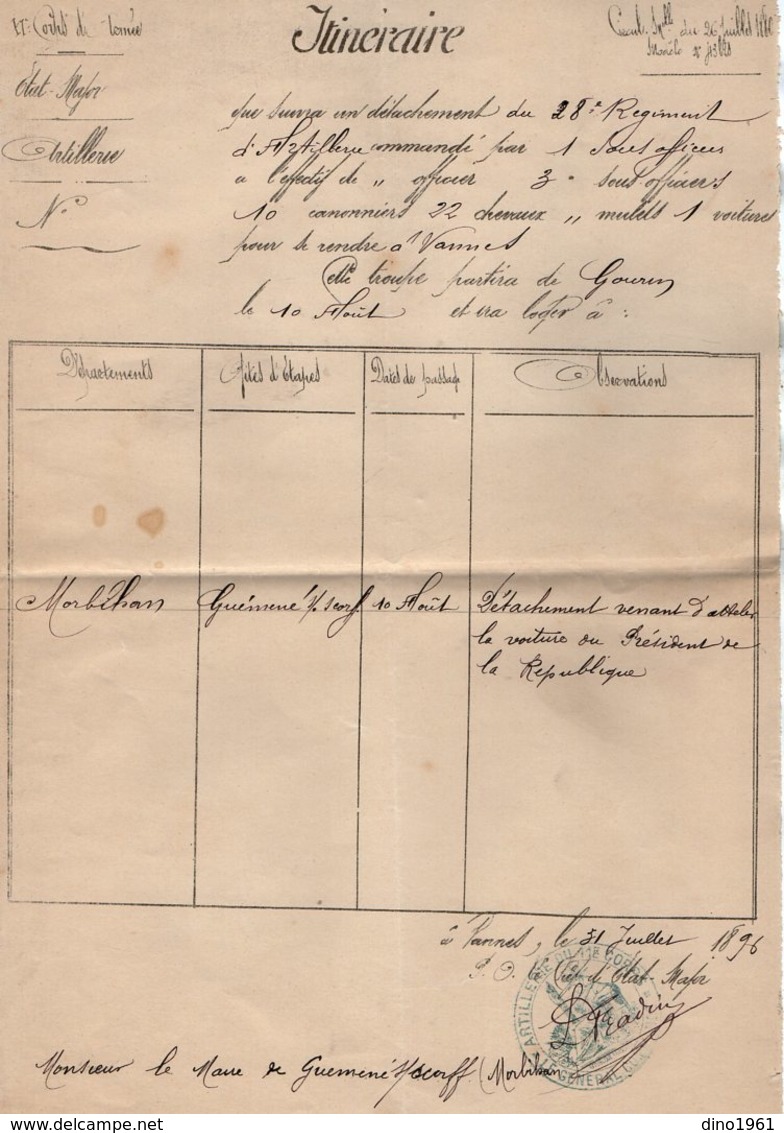 XIe Corps de Armée
État-Major
Artillerie
No
Itinéraire
Circul. Mlle du 26 Juillet
Modèle
que suivra un détachement du 28e Régiment
d'Artillerie commandé par 1 sous officier
a l'effectif de „ officier 3 " sous-officiers
10 canonniers 22 chevaux „ mulets 1 voiture
pour se rendre à Vannes
Cette troupe partira de Gourin
le 10 Août et ira loger à :
Départements Gîtes d'Étapes Dates de passage Observations
Morbihan Guémené s/ scorff 10 Août Détachement venant d'atteler
la voiture du Président de
la République
à Vannes, le 31 Juillet 1896
P. O. le Chef d'État-Major
ARTILLERIE DU 11e CORPS
GENERAL
Monsieur le Maire de Guémené s/scorff (Morbihan
dino1961